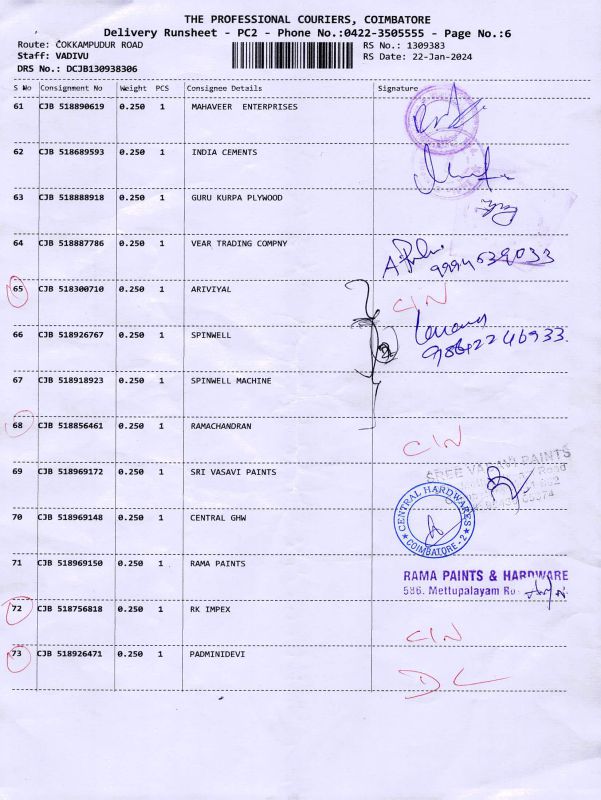 THE PROFESSIONAL COURIERS, COIMBATORE
Delivery Runsheet - PC2 - Phone No.:0422-3505555 - Page No.:6
Route: COKKAMPUDUR ROAD RS No.: 1309383
Staff: VADIVU RS Date: 22-Jan-2024
DRS No.: DCJB130938306
S No Consignment No Weight PCS Consignee Details Signature
61 CJB 518890619 0.250 1 MAHAVEER ENTERPRISES
62 CJB 518689593 0.250 1 INDIA CEMENTS
63 CJB 518888918 0.250 1 GURU KURPA PLYWOOD
64 CJB 518887786 0.250 1 VEAR TRADING COMPNY
9994539033
65 CJB 518300710 0.250 1 ARIVIYAL C/N
66 CJB 518926767 0.250 1 SPINWELL
98642246933.
67 CJB 518918923 0.250 1 SPINWELL MACHINE
68 CJB 518856461 0.250 1 RAMACHANDRAN C/N
69 CJB 518969172 0.250 1 SRI VASAVI PAINTS
70 CJB 518969148 0.250 1 CENTRAL GHW CENTRAL HARDWARES COIMBATORE - 2
71 CJB 518969150 0.250 1 RAMA PAINTS RAMA PAINTS & HARDWARE
586. Mettupalayam
72 CJB 518756818 0.250 1 RK IMPEX C/N
73 CJB 518926471 0.250 1 PADMINIDEVI DL